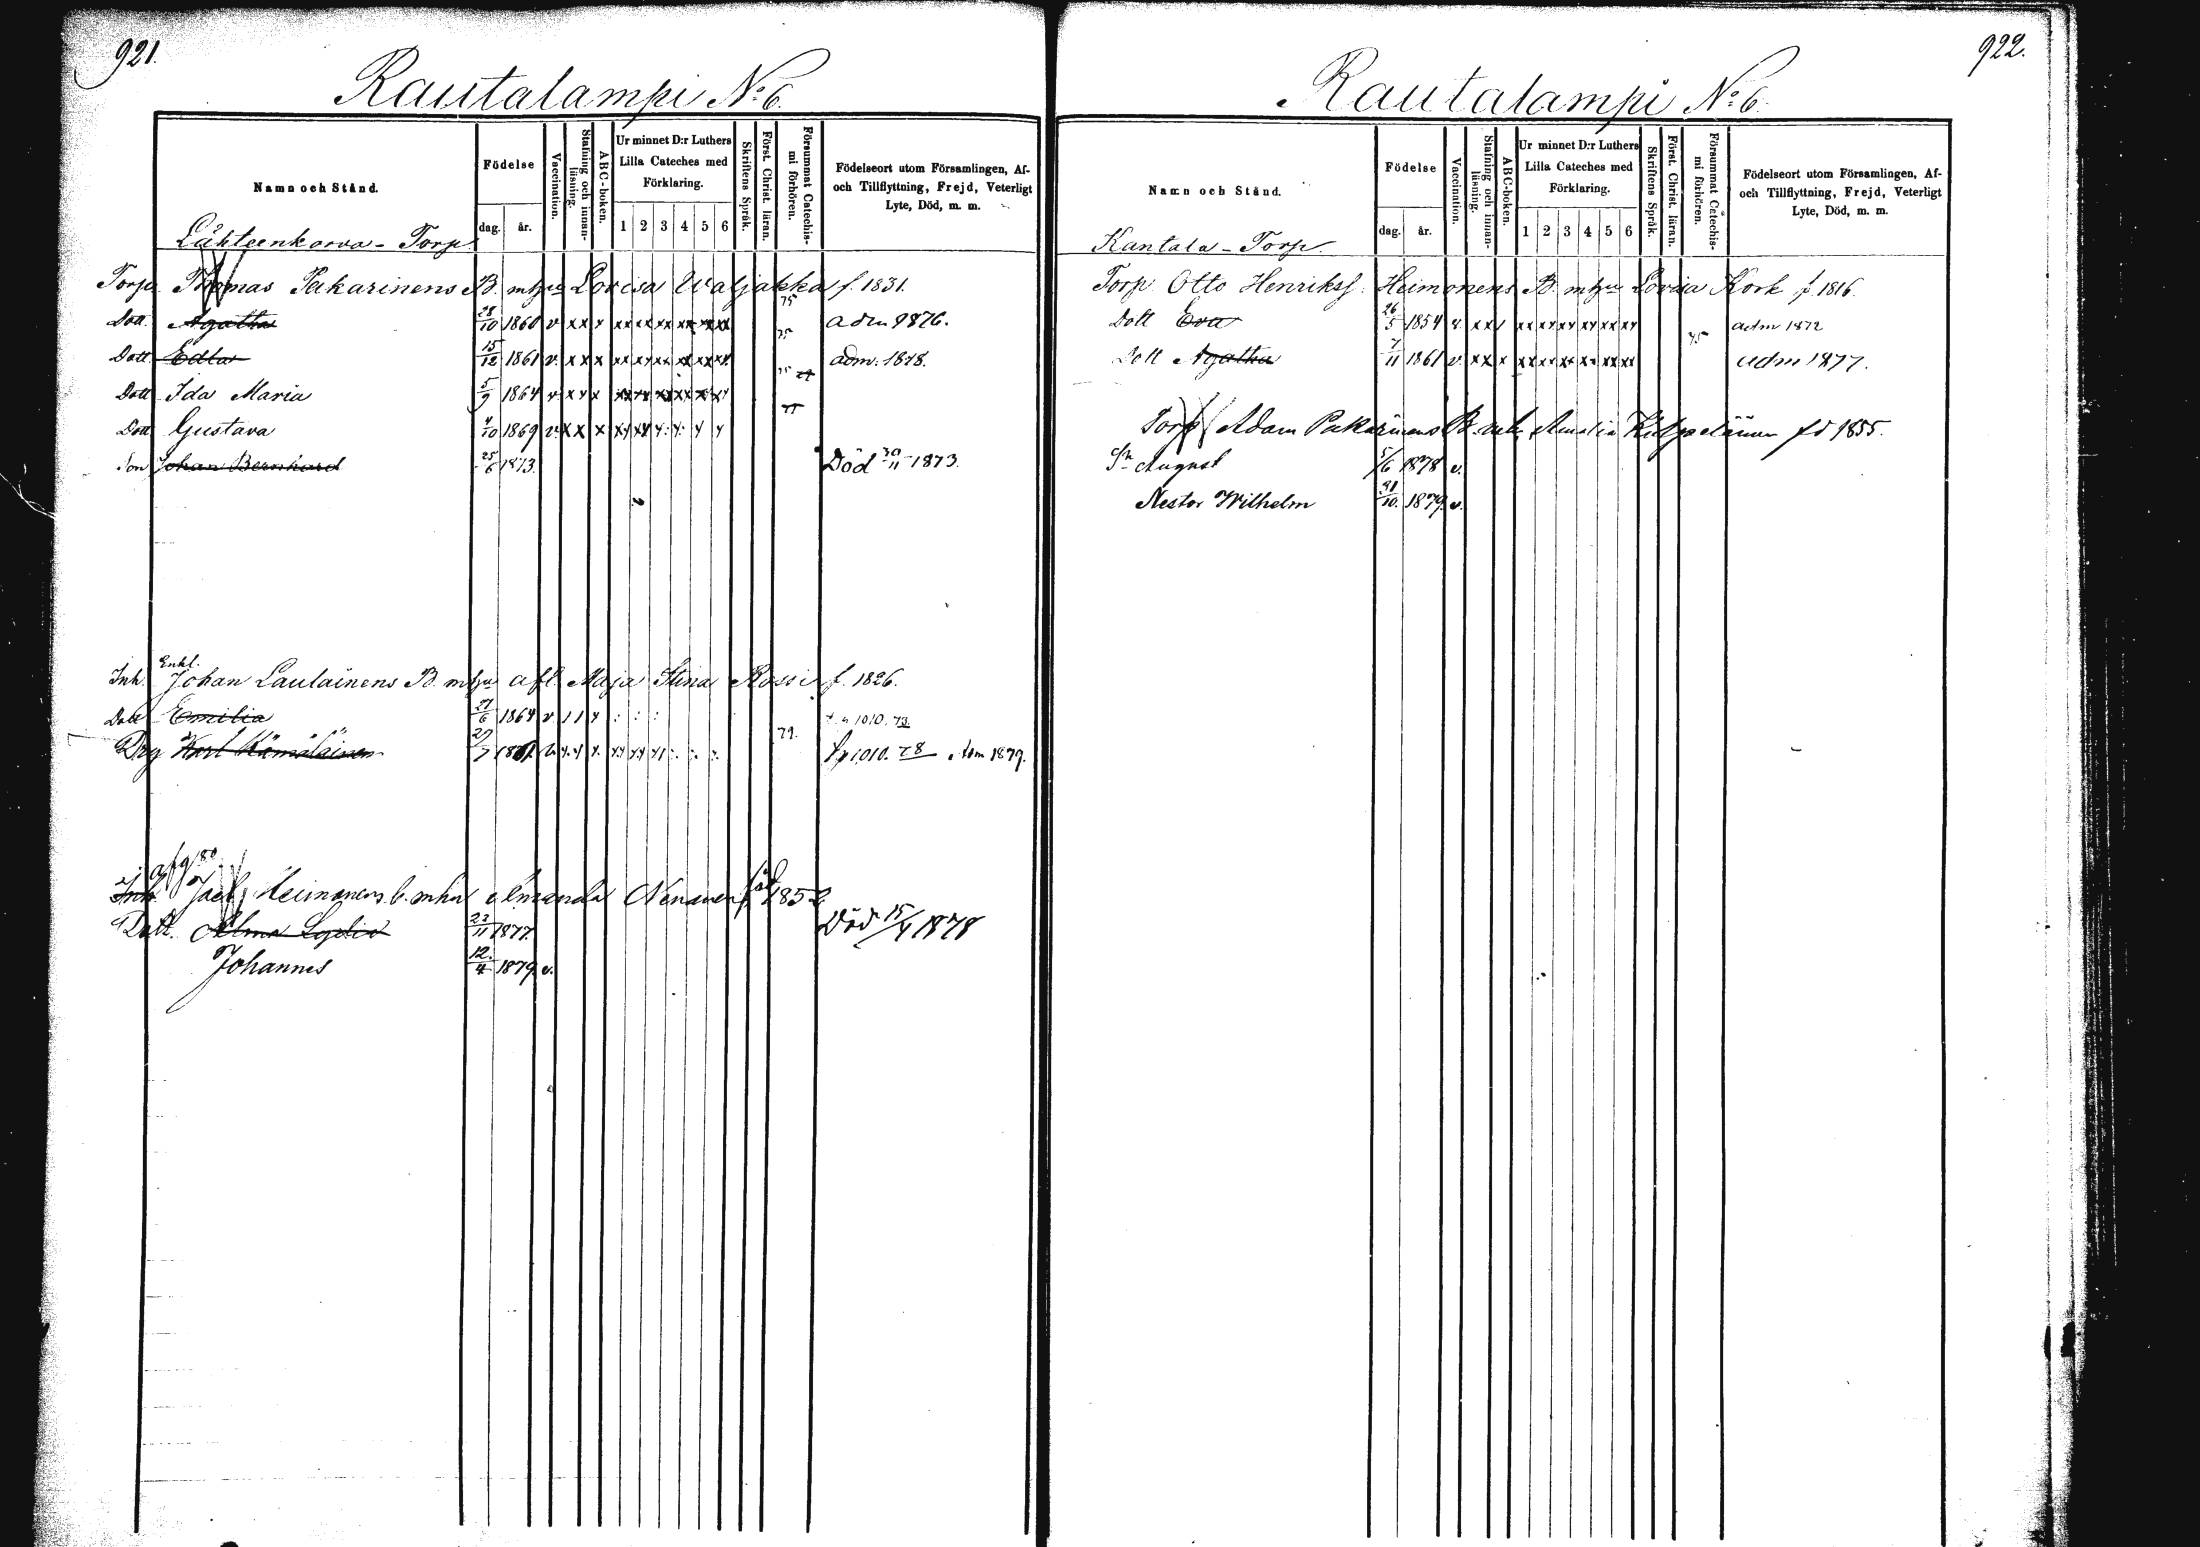 921.
Rautalampi No. 6.
Namn och Stånd.
Födelse
dag.
år.
Vaccination.
Stafning och innan-
läsning.
ABC-boken.
Ur minnet D:r Luthers
Lilla Cateches med
Förklaring.
1 2 3 4 5 6
Skriftens Språk.
Först. Christ. läran.
Försummat Catechis-
mi förhören.
Födelseort utom Församlingen, Af-
och Tillflyttning, Frejd, Veterligt
Lyte, Död, m. m.
Lähteenkorva - Torp
Torp. Thomas Pakarinens B. m hu Lovisa Waljakka f. 1831.
Dott. Agatha 28/10 1860 v x x x xx xx xx xx xx xx 75 adm 1876.
Dott. Edla 15/12 1861 v. x x x xx xx xx xx xx xx 75 adm. 1878.
Dott Ida Maria 5/9 1864 v x x x xx xx xx xx xx xx 75
Dott Gustava 4/10 1869 v. x x x
Son Johan Bernhard 25/6 1873. Död 30/11 1873.
Enkl.
Inh. Johan Laulainens B. m hu afl. Maja Stina Rossi f. 1826.
Dott Emilia 27/6 1864 v 1010. 73
Drg Karl Hämäläinen 7 79. fr 1010. 78 Adm 1879.
80
Inh. Heimonens b. m hu Amanda Nenonen 1852
Dott. Alma Lydia 23/11 1877. Död 15/4 1878
Johannes 12./4 1879 v.
922.
Rautalampi No. 6.
Namn och Stånd.
Födelse
dag.
år.
Vaccination.
Stafning och innan-
läsning.
ABC-boken.
Ur minnet D:r Luthers
Lilla Cateches med
Förklaring.
1 2 3 4 5 6
Skriftens Språk.
Först. Christ. läran.
Försummat Catechis-
mi förhören.
Födelseort utom Församlingen, Af-
och Tillflyttning, Frejd, Veterligt
Lyte, Död, m. m.
Kantala - Torp
Torp. Otto Henrikss. Heimonens B. m hu Lovisa Kork f. 1816.
Dott Eva 26/5 1854 v. x x xx xx xx xx xx xx adm 1872
Dott Agatha 7/11 1861 v. x x x xx xx xx xx xx xx 75 adm 1877.
Torp Adam Pakarinens B. Amalia fd 1855.
Sn August 5/6 1878 v.
Nestor Wilhelm 31/10. 1879. v.